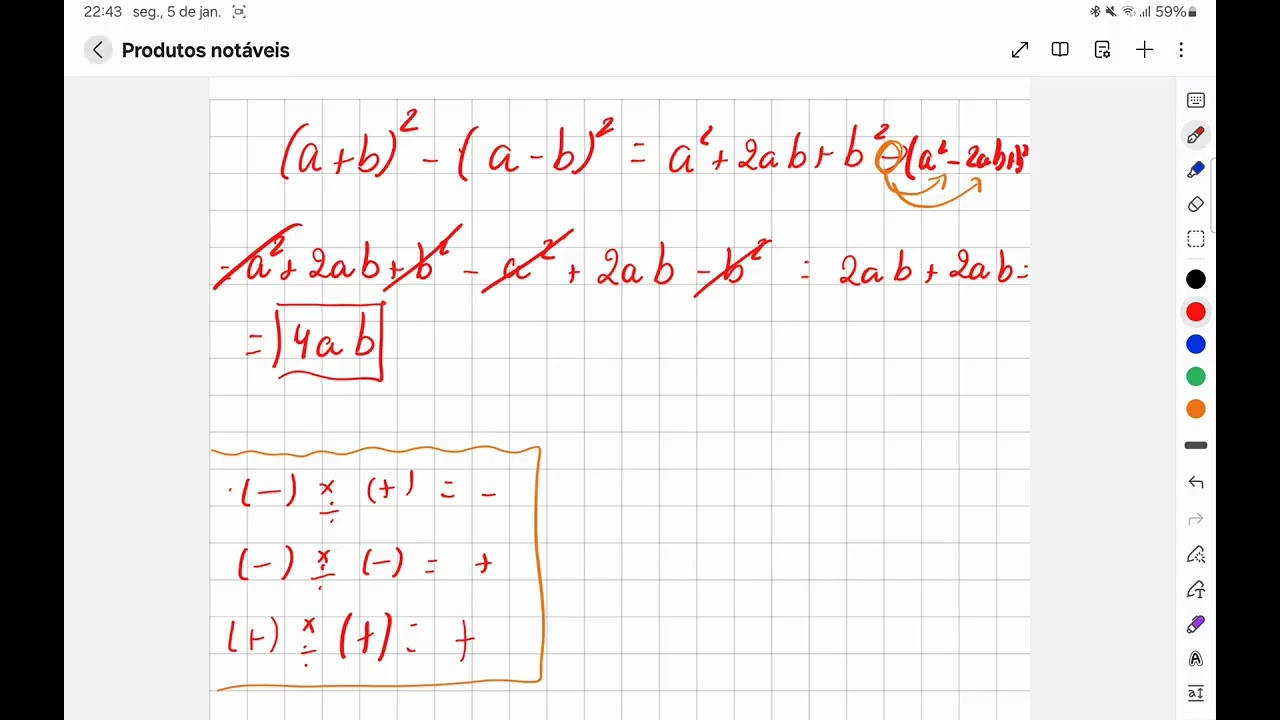 22:43 seg., 5 de jan. 59%
Produtos notáveis
(a+b)² - (a-b)² = a² + 2ab + b² - (a² - 2ab + b²
= a² + 2ab + b² - a² + 2ab - b² = 2ab + 2ab =
= 4ab
(-) × ÷ (+) = -
(-) × ÷ (-) = +
(+) × ÷ (+) = +